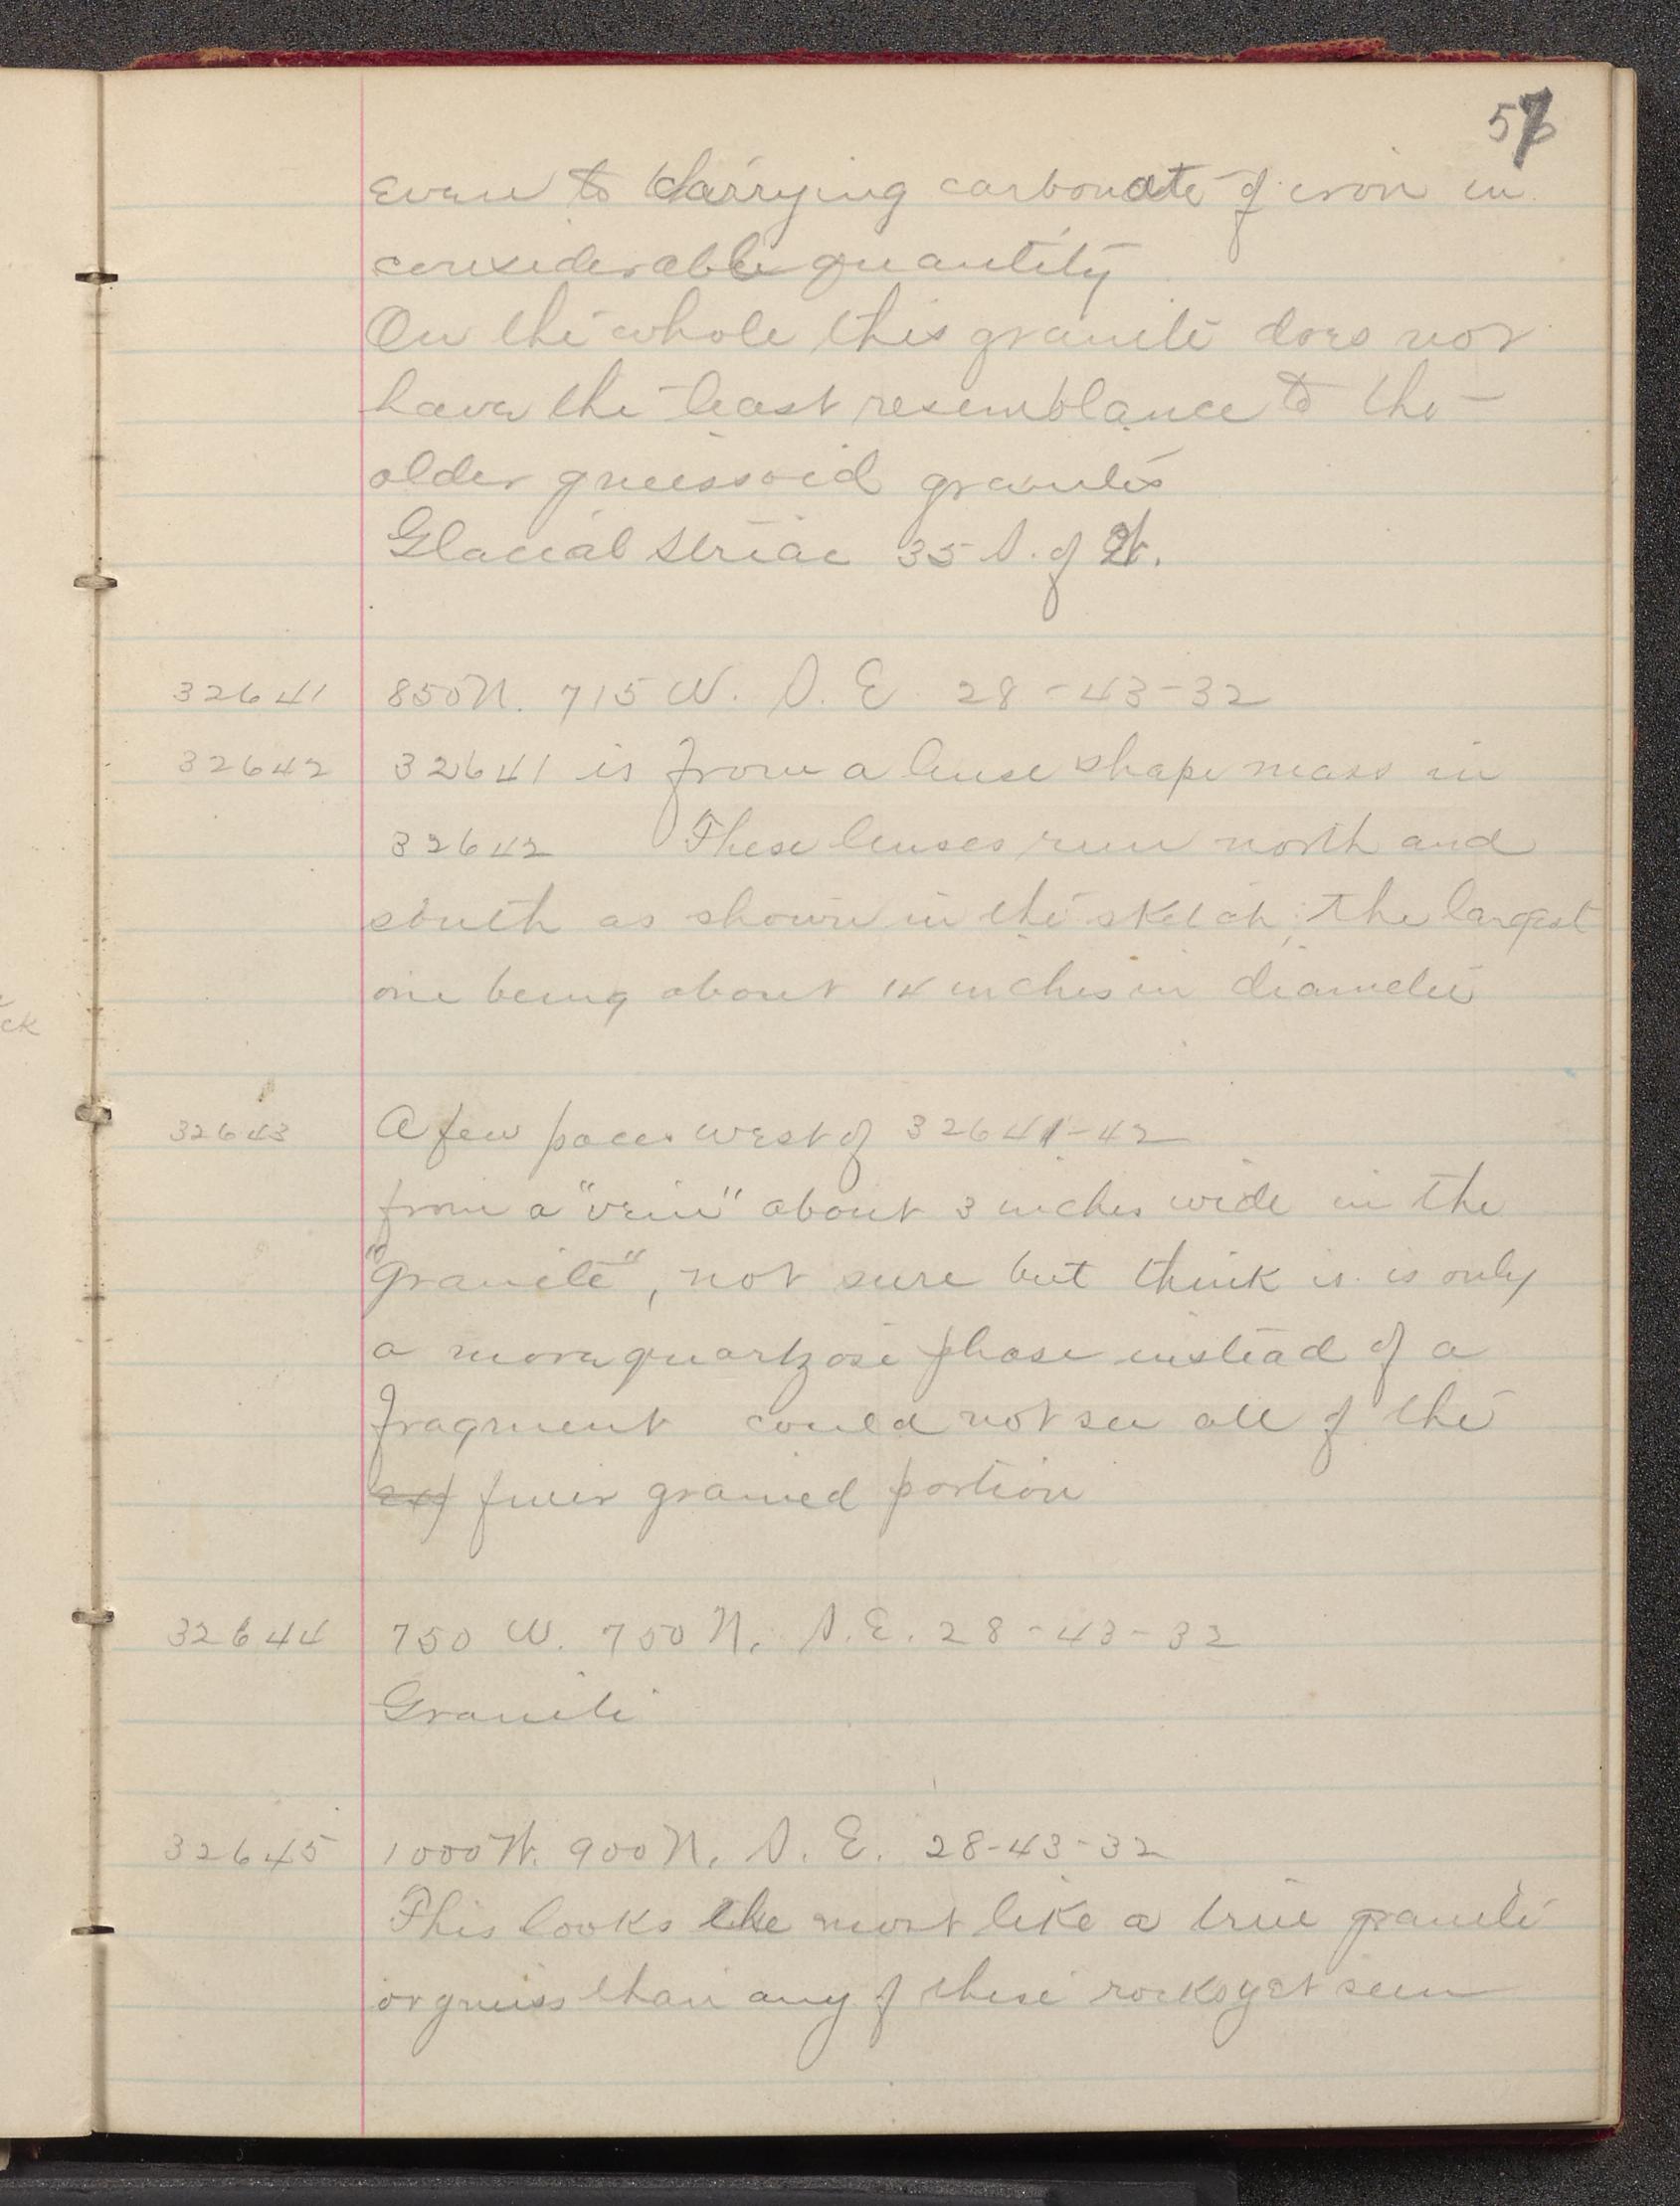 57
even to carrying carbonate of iron in
considerable quantity
On the whole this granite does not
have the least resemblance to the
older gneissoid granites
Glacial striae 35 S. of W.
32641 850 N. 715 W. S. E 28-43-32
32642 32641 is from a lense shape mass in
32642 These lenses run north and
south as shown in the sketch; the largest
one being about 14 inches in diameter
32643 A few paces west of 32641-42
from a "vein" about 3 inches wide in the
"granite", not sure but think it is only
a more quartzose phase instead of a
fragment could not see all of the
finer grained portion
32644 750 W. 750 N. S.E. 28-43-32
Granite
32645 1000 W. 900 N. S. E. 28-43-32
This looks the most like a true granite
or gneiss than any of these rocks yet seen
ck